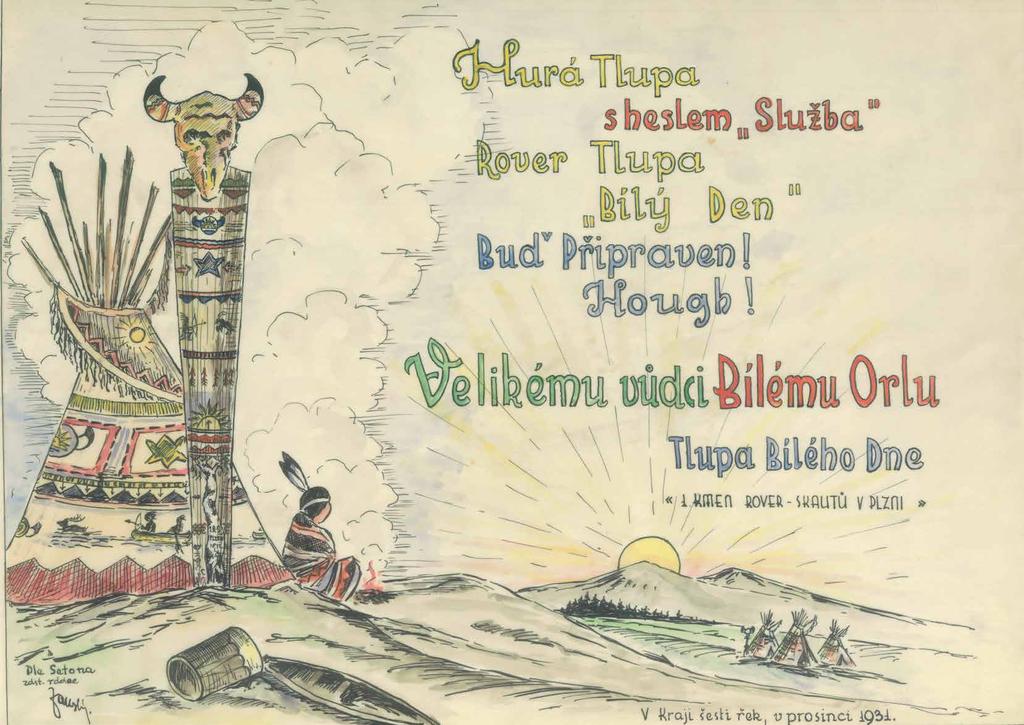 Hurá Tlupa
s heslem „Služba"
Rover Tlupa
„Bílý Den"
Buď Připraven!
Hough!
Velikému vůdci Bílému Orlu
Tlupa Bílého Dne
« 1. KMEN ROVER-SKAUTŮ V PLZNI »
Dle Setona
zdst. rdcce
V Kraji šesti řek, v prosinci 1931.